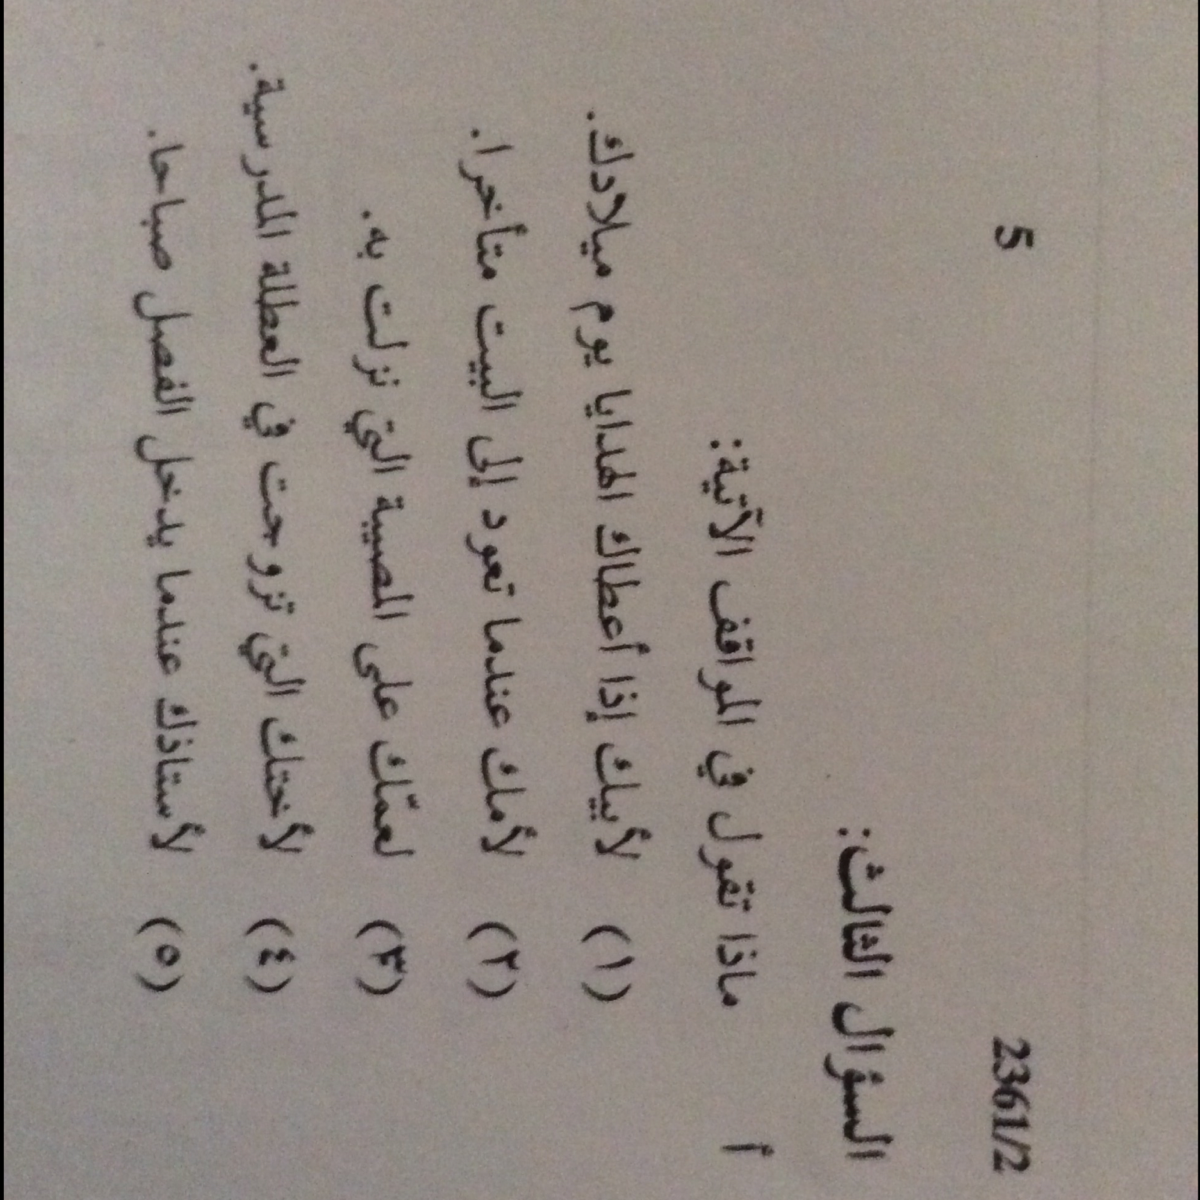 2361/2 5
السؤال الثالث:
أ ماذا تقول في المواقف الآتية:
(١) لأبيك إذا أعطاك الهدايا يوم ميلادك.
(٢) لأمك عندما تعود إلى البيت متأخرا.
(٣) لعمّك على المصيبة التي نزلت به.
(٤) لأختك التي تزوجت في العطلة المدرسية.
(٥) لأستاذك عندما يدخل الفصل صباحا.